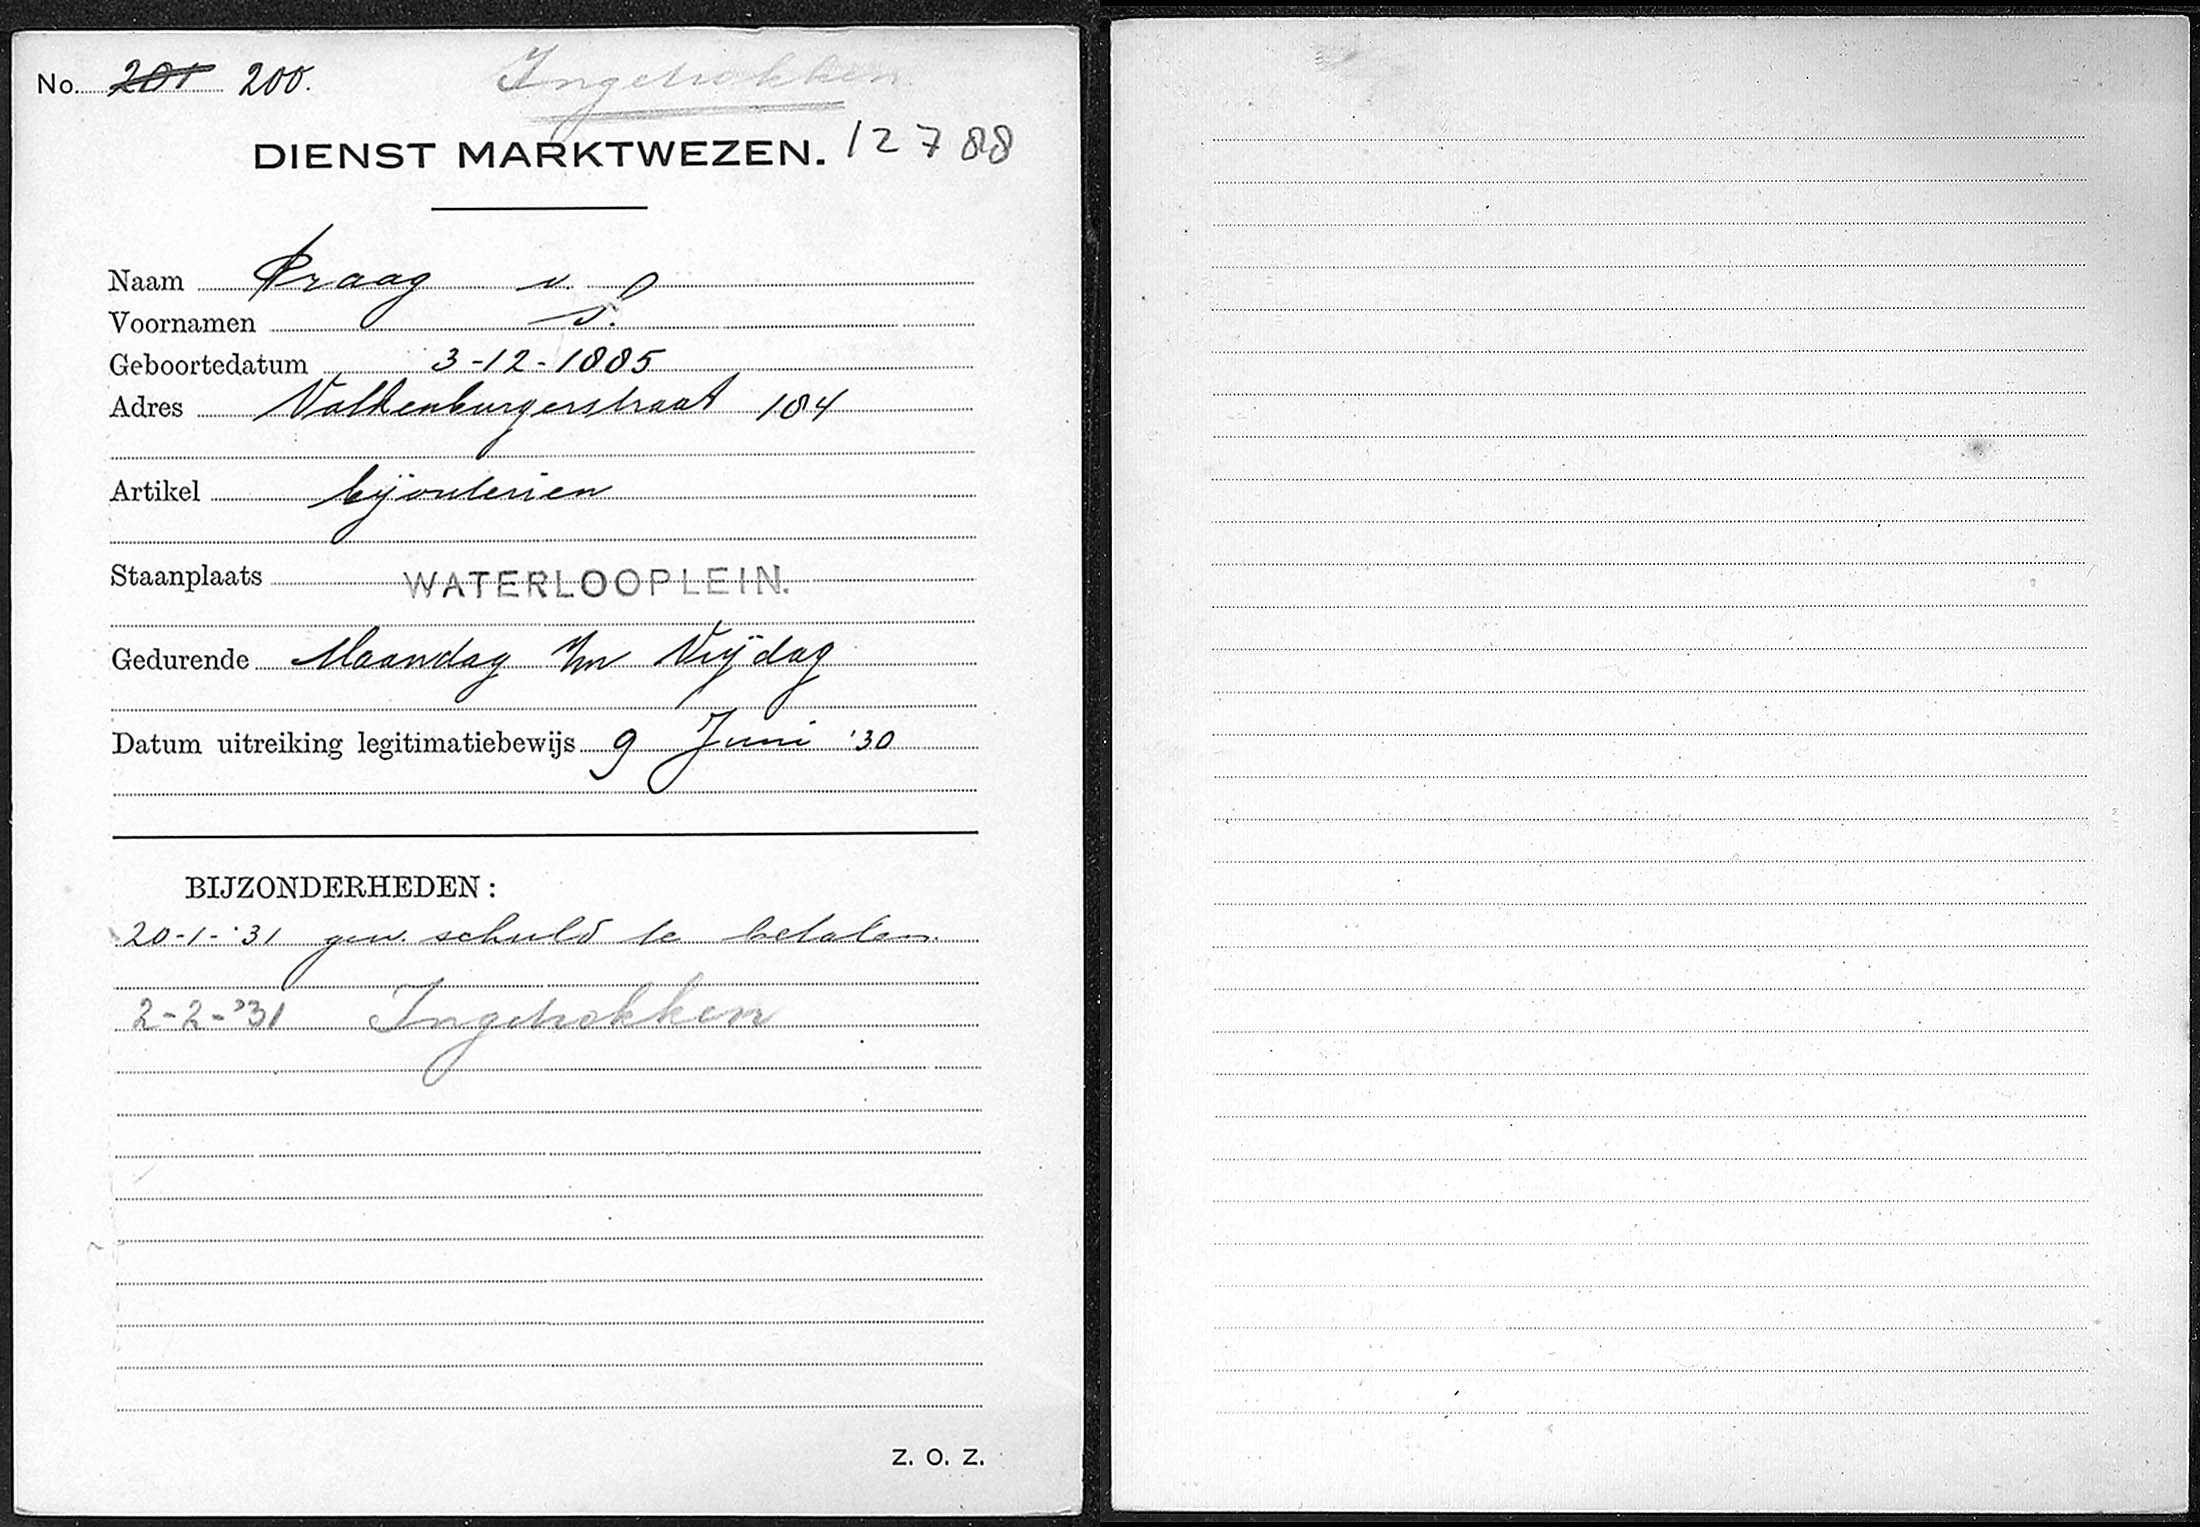 No. 201 200.
Ingetrokken
DIENST MARKTWEZEN. 12788
Naam Praag v.
Voornamen S.
Geboortedatum 3-12-1885
Adres Valkenburgerstraat 184
Artikel bijouterien
Staanplaats WATERLOOPLEIN.
Gedurende Maandag t/m Vrijdag
Datum uitreiking legitimatiebewijs 9 Juni '30
BIJZONDERHEDEN:
20-1-'31 gew. schuld te betalen.
2-2-'31 Ingetrokken
Z. O. Z.